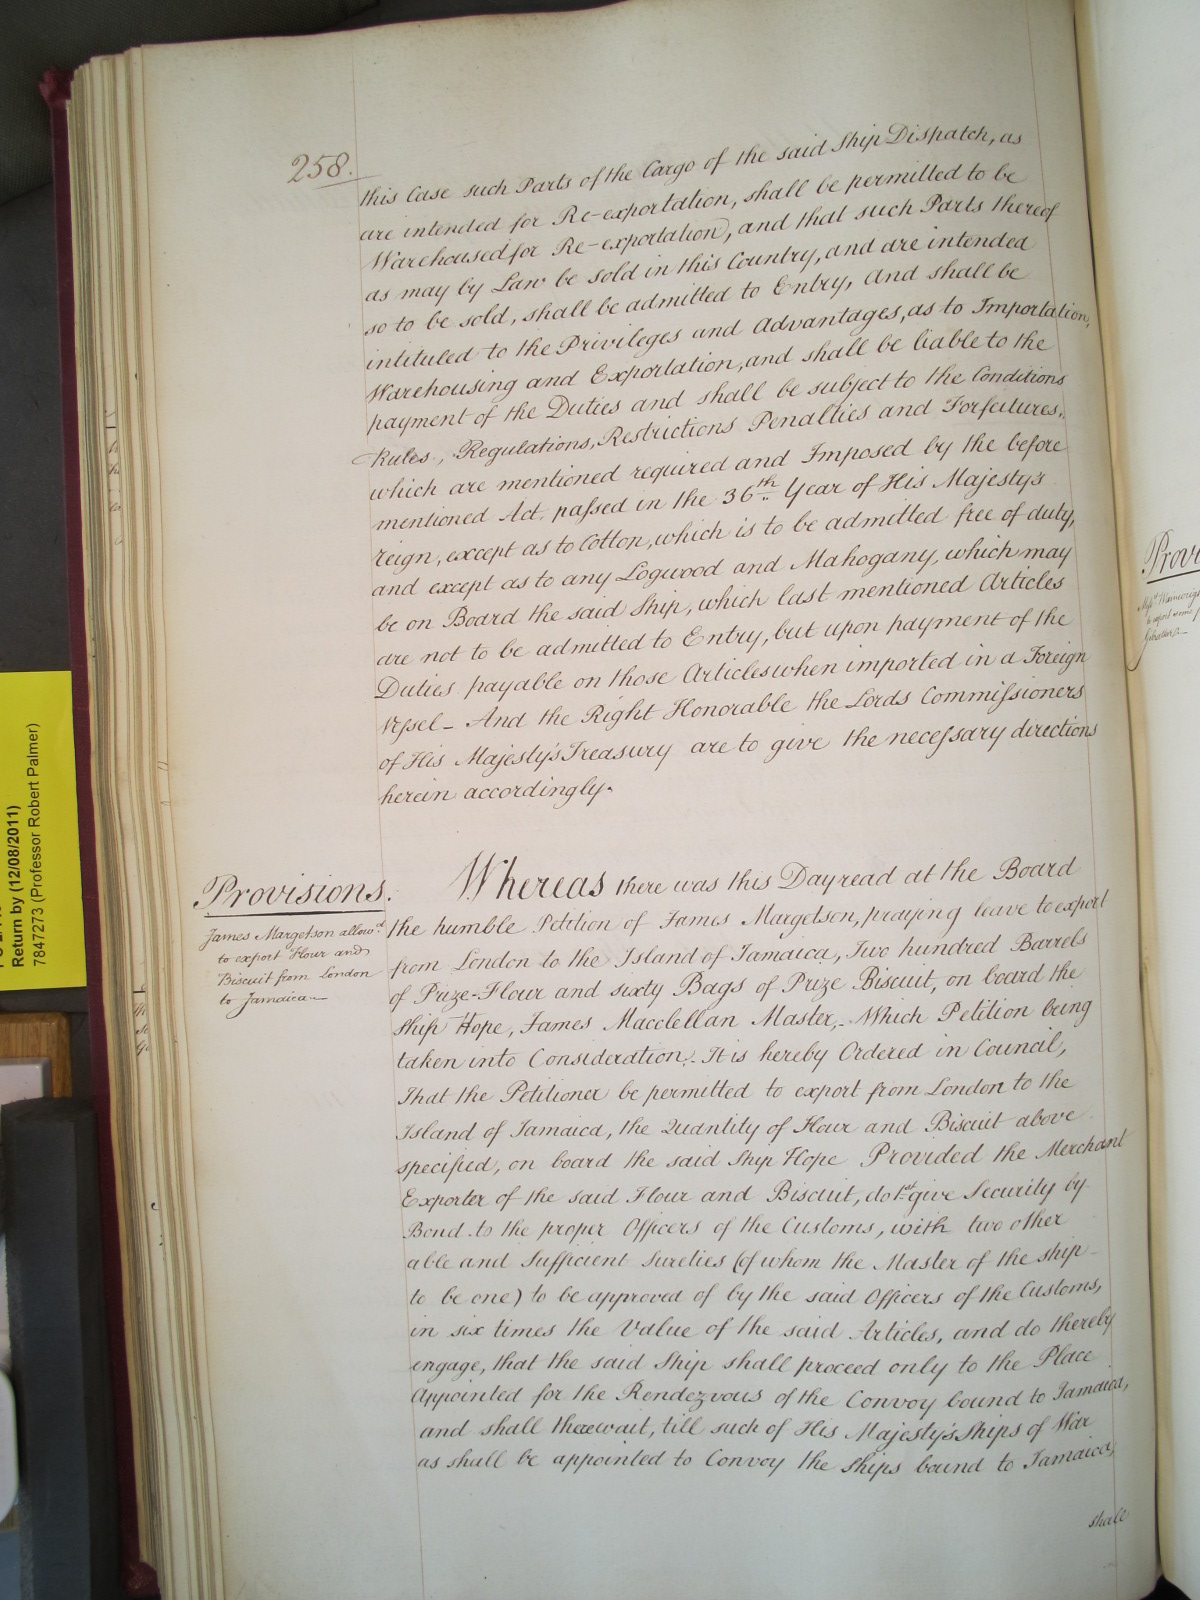 258.
this Case such Parts of the Cargo of the said Ship Dispatch, as
are intended for Re-exportation, shall be permitted to be
Warehoused for Re-exportation, and that such Parts thereof
as may by Law be sold in this Country, and are intended
so to be sold, shall be admitted to Entry, And shall be
intituled to the Privileges and Advantages, as to Importation,
Warehousing and Exportation, and shall be liable to the
payment of the Duties and shall be subject to the Conditions
Rules, Regulations, Restrictions Penalties and Forfeitures,
which are mentioned required and Imposed by the before
mentioned Act. passed in the 36th Year of His Majesty's
reign, except as to Cotton, which is to be admitted free of duty,
and except as to any Logwood and Mahogany, which may
be on Board the said Ship, which last mentioned Articles
are not to be admitted to Entry, but upon payment of the
Duties payable on those Articles when imported in a Foreign
Vessel - And the Right Honorable the Lords Commissioners
of His Majesty's Treasury are to give the necessary directions
herein accordingly.
Provisions.
James Margetson allow'd
to export Flour and
Biscuit from London
to Jamaica
Whereas there was this Day read at the Board
the humble Petition of James Margetson, praying leave to export
from London to the Island of Jamaica, Two hundred Barrels
of Prize-Flour and sixty Bags of Prize Biscuit, on board the
Ship Hope, James Macclellan Master, - Which Petition being
taken into Consideration. It is hereby Ordered in Council,
That the Petitioner be permitted to export from London to the
Island of Jamaica, the Quantity of Flour and Biscuit above
specified, on board the said Ship Hope Provided the Merchant
Exporter of the said Flour and Biscuit, do 1st give Security by
Bond to the proper Officers of the Customs, with two other
able and Sufficient Sureties (of whom the Master of the ship
to be one) to be approved of by the said Officers of the Customs,
in six times the Value of the said Articles, and do thereby
engage, that the said Ship shall proceed only to the Place
Appointed for the Rendezvous of the Convoy bound to Jamaica,
and shall there wait, till such of His Majesty's Ships of War
as shall be appointed to Convoy the Ships bound to Jamaica,
shall
Return by (12/08/2011)
7847273 (Professor Robert Palmer)